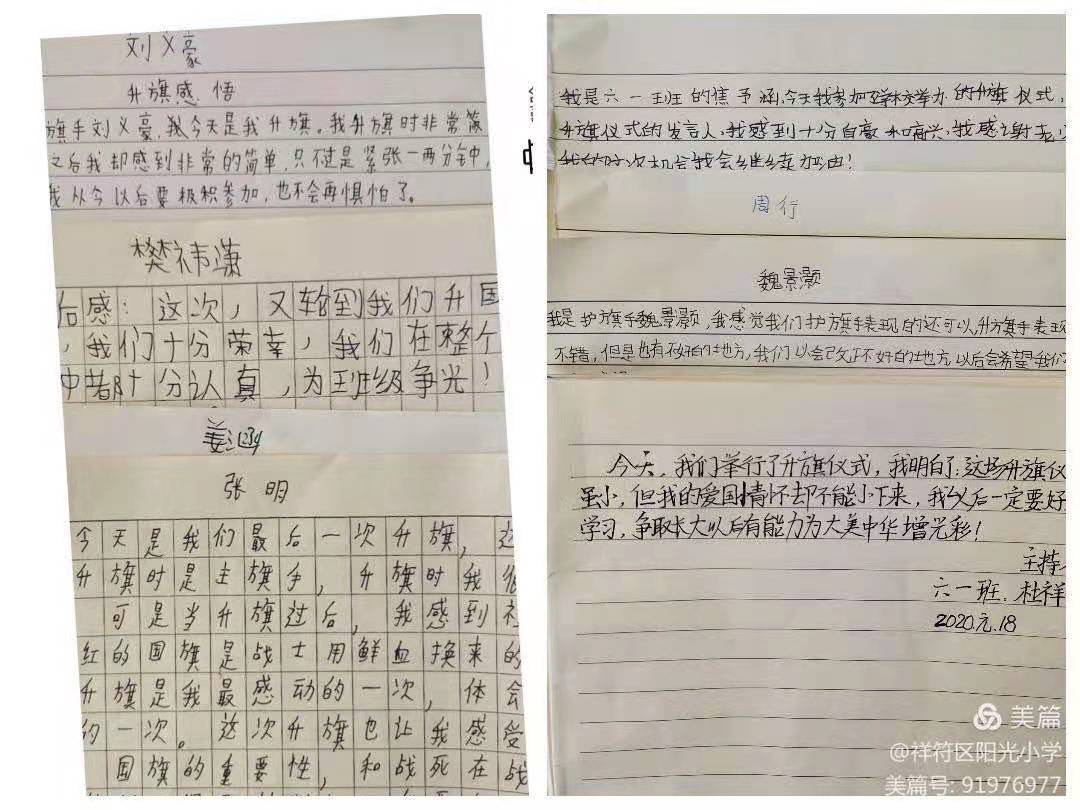 刘义豪
升旗感悟
旗手刘义豪,我今天是我升旗。我升旗时非常
之后我却感到非常的简单,只不过是紧张一两分钟,
我从今以后要极积参加,也不会再惧怕了。
樊祎潇
后感:这次,又轮到我们升国
,我们十分荣幸,我们在整个
中都十分认真,为班级争光!
姜涵
张明
今天是我们最后一次升旗,这
升旗时是主旗手,升旗时我很
可是当升旗过后,我感到
红的国旗是战士用鲜血换来的
升旗是我最感动的一次,体会
的一次。这次升旗也让我感受
国旗的重要性,和战死在战
我是六一班的焦予涵,今天我参加学校举办的升旗仪式,
升旗仪式的发言人,我感到十分自豪和高兴,我感谢老
次机会我会继续加油!
周行
魏景颢
我是护旗手魏景颢,我感觉我们护旗手表现的还可以,升旗手表现
不错,但是也有不好的地方,我们以会改正不好的地方,以后会希望我们
今天,我们举行了升旗仪式,我明白了:这场升旗仪
虽小,但我的爱国情怀却不能小下来,我以后一定要好
学习,争取长大以后有能力为大美中华增光彩!
主持
六一班.杜祥
2020.元.18
美篇
@祥符区阳光小学
美篇号:91976977